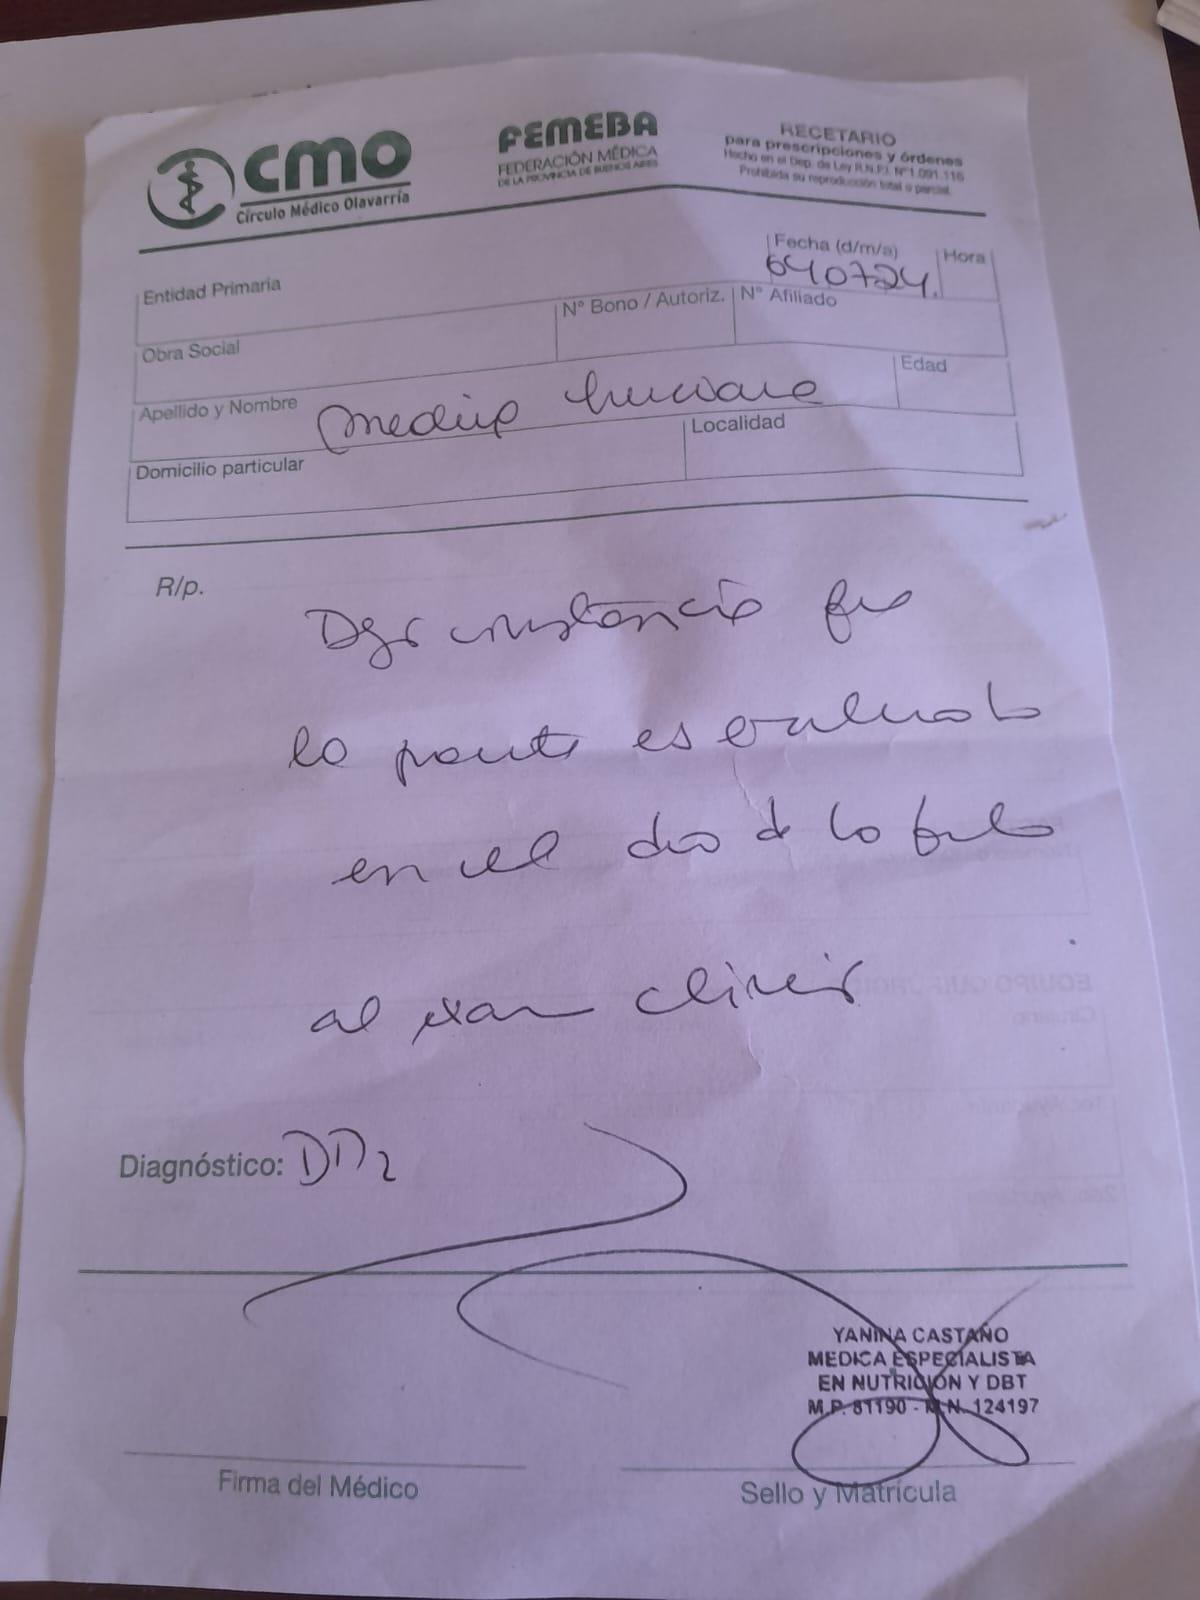 CMO
Círculo Médico Olavarría
FEMEBA
FEDERACIÓN MÉDICA
DE LA PROVINCIA DE BUENOS AIRES
RECETARIO
para prescripciones y órdenes
Hecho en el Dep. de Ley R.N.P.I. Nº 1.091.116
Prohibida su reproducción total o parcial.
Fecha (d/m/a)
Hora
Entidad Primaria
Nº Bono / Autoriz.
Nº Afiliado
Obra Social
Edad
Apellido y Nombre
Localidad
Domicilio particular
R/p.
constancia que
la es evaluada
en el día de la
al clínico
Diagnóstico:
YANINA CASTAÑO
MEDICA ESPECIALISTA
EN NUTRICION Y DBT
M.P. 81190 - M.N. 124197
Firma del Médico
Sello y Matrícula